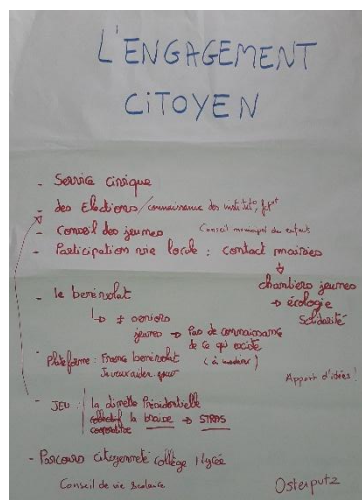 L'ENGAGEMENT
CITOYEN
- Service civique
- des Elections / connaissance des institut°, fct°
- Conseil des jeunes Conseil municipal des enfants
- Participation vie locale : contact mairies
↓
chantiers jeunes
→ écologie
Solidarité
- le bénévolat
↳ + seniors
jeunes → Pas de connaissance
de ce qui existe
Plateforme : France bénévolat (à moderer)
Jeveuxaider.gouv
Apport d'idées !
- JEU : la dinette Présidentielle
collectif la braise → STRAS
coopérative
- Parcours citoyenneté collège / lycée
Conseil de vie scolaire
Osterputz